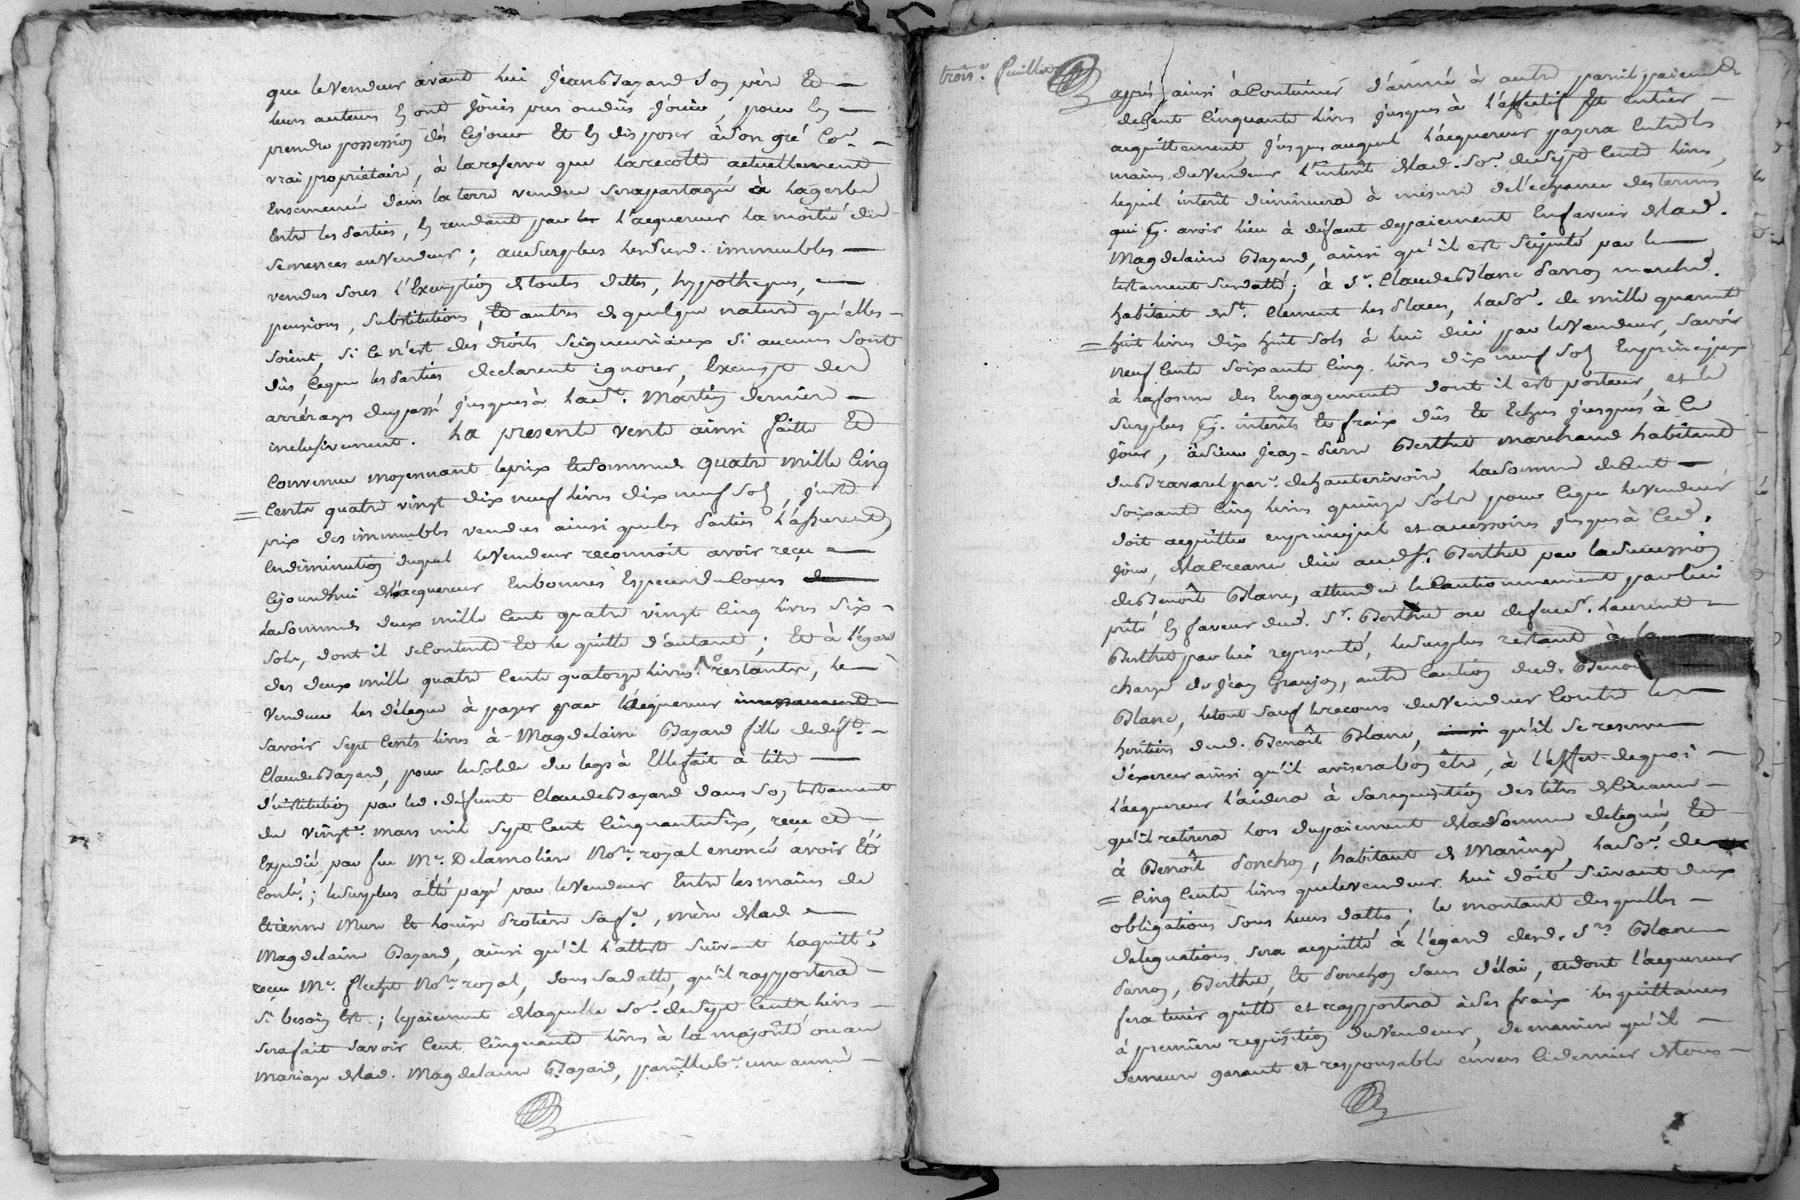 que le vendeur avant lui Jean Bazard son père Et
leurs auteurs En ont Jöüis pus ou dûs Jouir, pour En
prendre possession dès Cejour Et En disposer à Son gré Co.
vrai propriétaire, à la reserve que la recolte actuellement
Ensemencée dans la terre vendue sera partagée à la gerbe
Entre les Parties, En rendant par l'acquereur la moitié des
semences au Vendeur; au Surplus lesdits immeubles
vendus sous l'Exemption de toutes dettes, hypotheques,
pensions, Substitutions, Et autres de quelque nature qu'elles
soint, si ce n'est des droits Seigneuriaux si aucuns Sont
dûs, Ceque les Parties declarent ignorer, Exempt des
arrérages du passé jusques à la St. Martin dernier
inclusivement. La presente vente ainsi faitte Et
Convenue moyennant le prix Et Somme de quatre mille Cinq
Cents quatre vingt dix neuf livres dix neuf Sols, juste
prix des immeubles vendus ainsi que les Parties l'assurent
En diminution duquel le Vendeur reconnoit avoir reçu
Cejourdhui de l'acquereur En bonnes Especes de Cours
la Somme de deux mille Cent quatre vingt Cinq livres Six
Sols, dont il se Contente Et le quitte d'autant; Et à l'égard
des deux mille quatre Cents quatorze livres restantes, le
Vendeur les délegue à payer par l'acquereur
savoir sept Cents livres à Magdelaine Bazard fille de déft.
Claude Bazard, pour le Solde du legs à Elle fait à titre
d'institution par led. défunt Claude Bazard dans Son testament
du vingt mars mil Sept Cent Cinquante Six, reçu et
Expedié par feu Me. Delamoliere Nore. royal enoncé avoir Eté
Contlé; le Surplus a Eté payé par le Vendeur Entre les mains de
Etienne Mure Et Louise Protiere Sa fe., mère de lad
Magdelaine Bazard, ainsi qu'il l'atteste suivant la quittce.
reçue Me. flechet Nore. royal, sous Sa datte, qu'il rapportera
Si besoin Est; le paiement de laquelle So. de Sept Cents livres
sera fait savoir Cent Cinquante livres à la majorité ou au
mariage de lad. Magdelaine Bazard, pareille So. une année
trois. feuillet
après, ainsi à Continuer d'année à autre pareil paiement
de Cent Cinquante livres jusques à l'effectif Et Entier
acquittement jusques auquel l'acquereur payera Entre les
mains du Vendeur l'interêt de lad. So. de Sept Cents livres,
lequel interêt diminuera à mesure de l'echeance des termes
qui avoir lieu à défaut de paiement En faveur de lad.
Magdelaine Bazard, ainsi qu'il est Stipulé par le
testament Sus datté; à Sr. Claude Blanc Parron marchd.
habitant de St. Clement les Places, la So. de mille quarante
huit livres dix huit Sols à lui düe par le Vendeur, savoir
neuf Cents Soixante Cinq livres dix neuf Sols En principaux
à la forme des Engagements dont il est porteur, et le
Surplus interêts Et fraix dûs Et Echus jusques à Ce
Jour, à Sieur Jean-Pierre Berthet marchand habitant
du Bravard par. de hauterivoire, la Somme de Cent
soixante Cinq livres quinze Sols pour Ceque le Vendeur
doit acquitter en principal et accessoires jusques à Ced.
jour, de la creance düe aud. Sr. Berthet par la Succession
de Benoît Blanc, attendu le Cautionnement par lui
prêté En faveur dud. Sr. Berthet ou de feu Sr. Laurent
Berthet par lui representé, le surplus restant à la
charge de Jean Granjon, autre Caution dud.
Blanc, le tout sauf le recours du Vendeur Contre les
heritiers dud. Benoît Blanc, qu'il se reserve
d'éxercer ainsi qu'il avisera bon être, à l'effet de quoi
l'acquereur l'aidera à Sa requisition des titres de Creance
qu'il retirera lors du paiement de la Somme deleguée, Et
à Benoît Ponchon, habitant de Maringe la So. de
Cinq Cents livres que le Vendeur lui doit Suivant deux
obligations Sous leurs dattes; le montant desquelles
delegations sera acquitté à l'égard desd. Srs Blanc
Parron, Berthet, Et Ponchon sans délai, et dont l'acquereur
fera tenir quitte et rapportera à Ses fraix les quittances
à premiere requisition du Vendeur, de maniere qu'il
demeure garant et responsable envers Ce dernier de tous